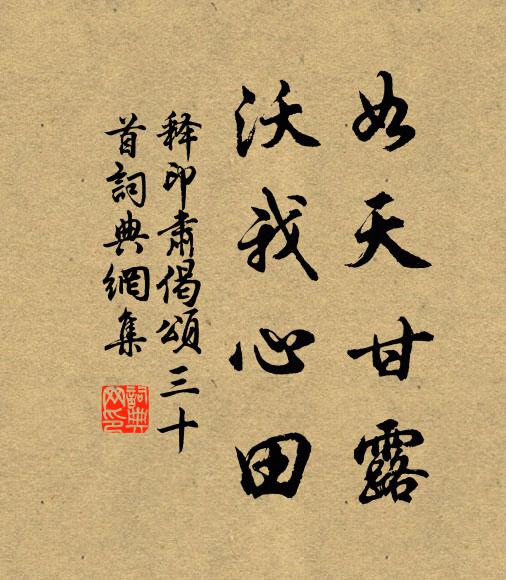 如天甘露
沃我心田
释印肃偈颂三十
首詞典網集
詞典网印